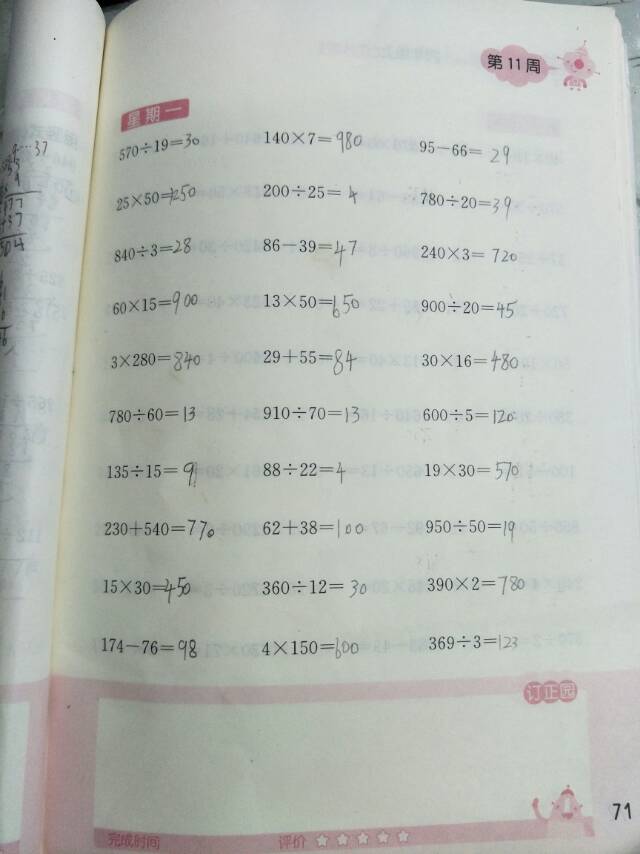 第11周
星期一
570÷19=30 140×7=980 95-66=29
25×50=1250 200÷25=4 780÷20=39
840÷3=28 86-39=47 240×3=720
60×15=900 13×50=650 900÷20=45
3×280=840 29+55=84 30×16=480
780÷60=13 910÷70=13 600÷5=120
135÷15=9 88÷22=4 19×30=570
230+540=770 62+38=100 950÷50=19
15×30=450 360÷12=30 390×2=780
174-76=98 4×150=600 369÷3=123
订正园
完成时间 评价
71